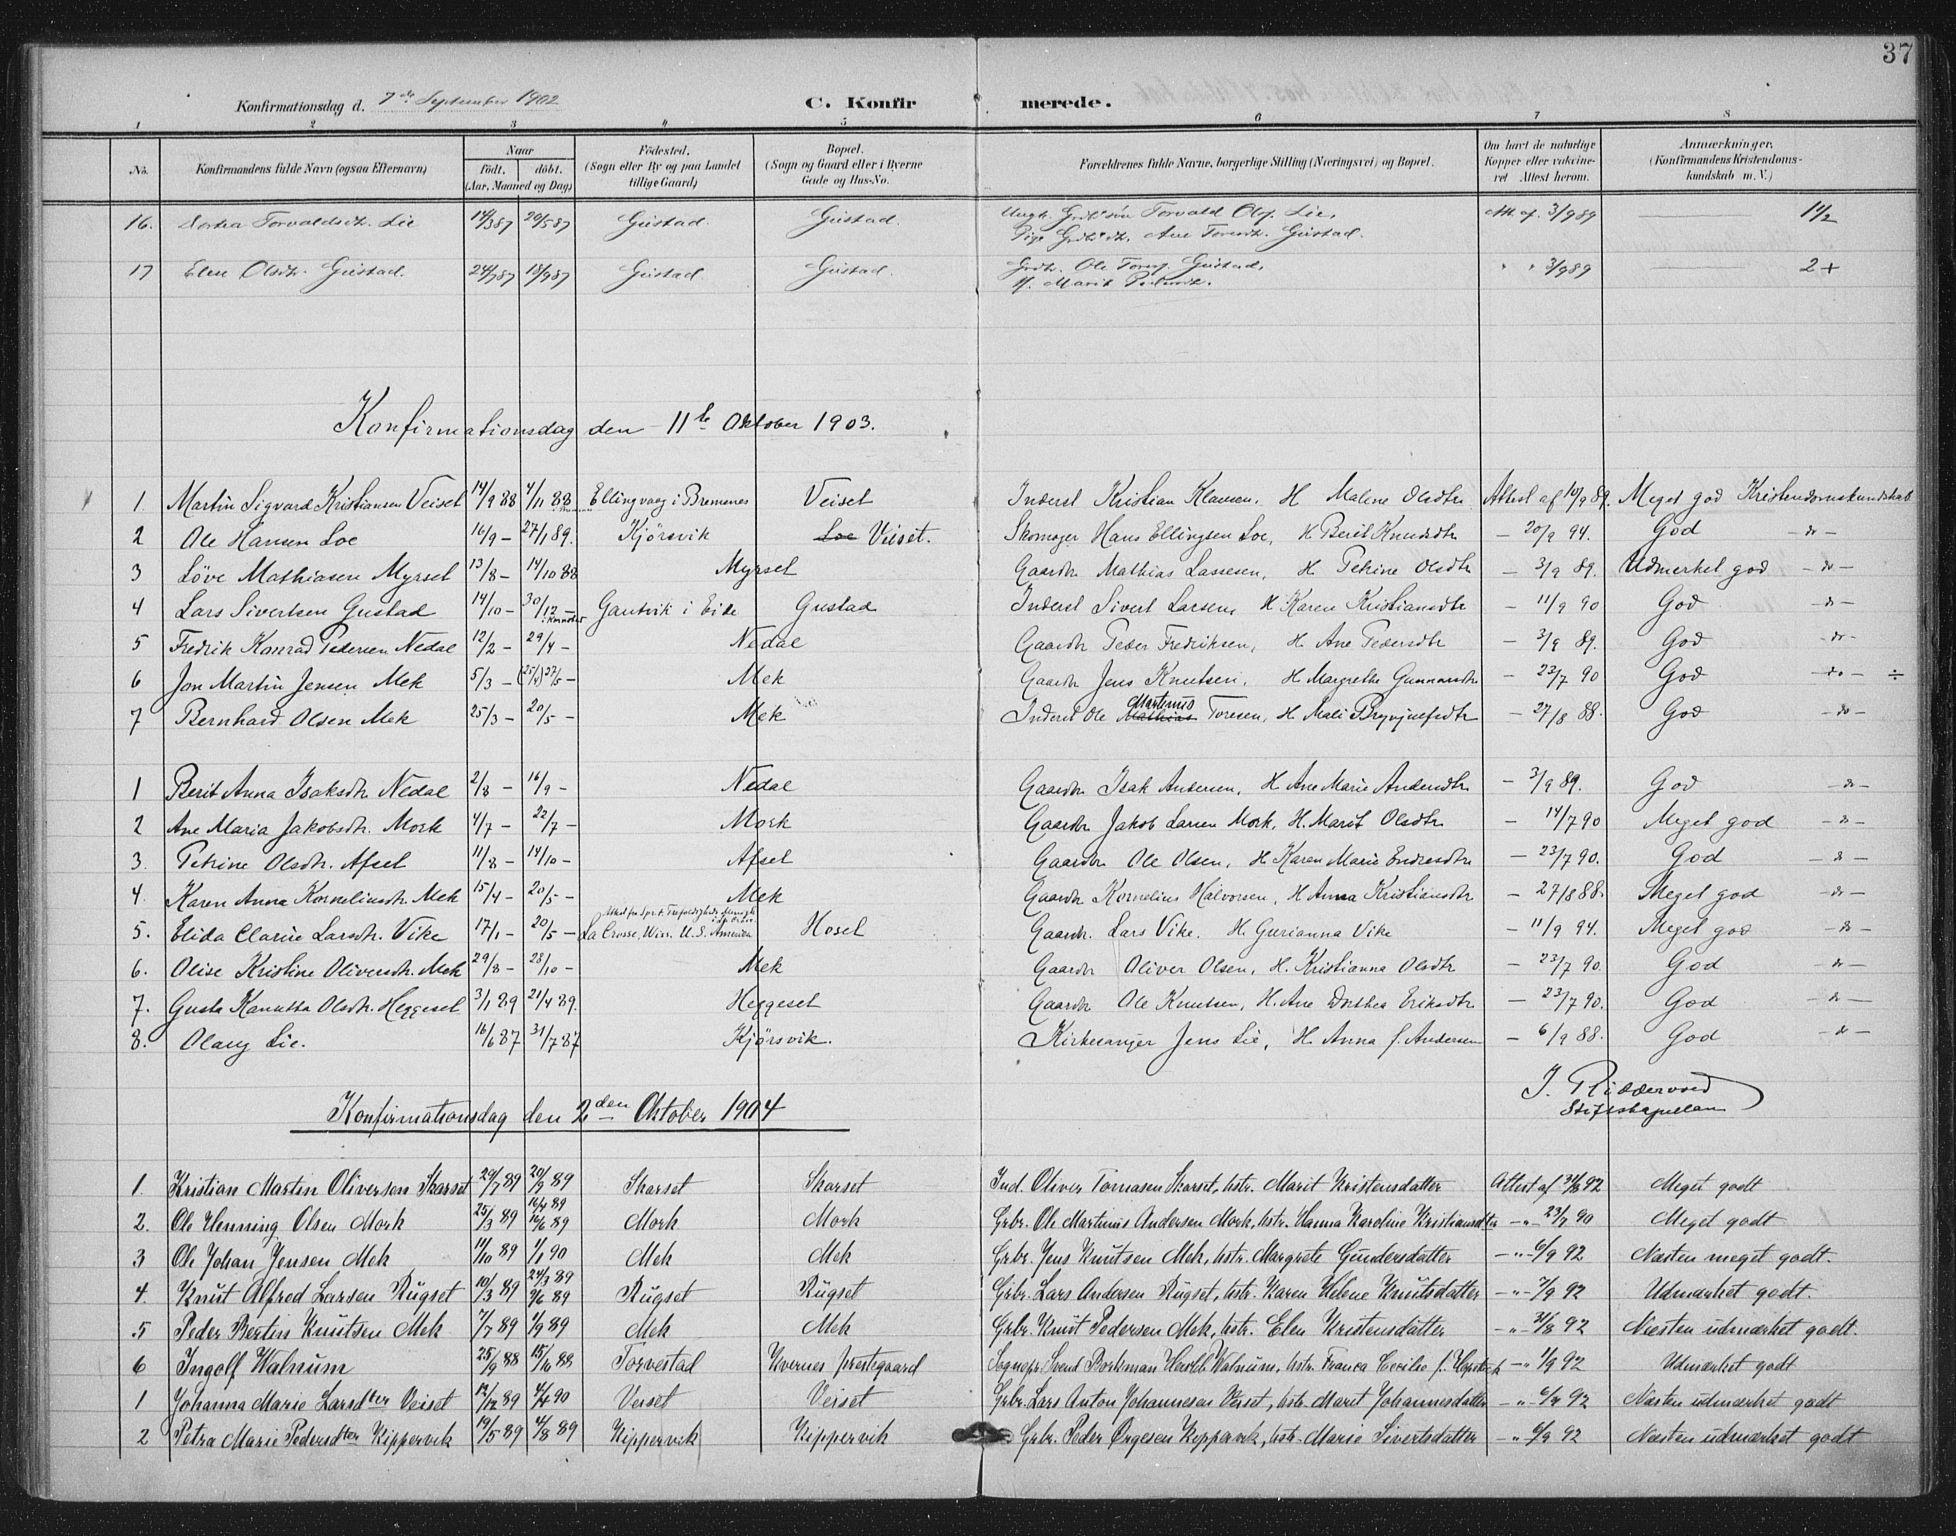 37
Konfirmationsdag d. 7de September 1902 C. Konfirmerede.
1 2 3 4 5 6 7 8
No. Konfirmandens fulde Navn (ogsaa Efternavn) Naar födt. döbt. (Aar, Maaned og Dag) Födested. (Sogn eller By og paa Landet tillige Gaard) Bopæl. (Sogn og Gaard eller i Byerne Gade og Hus-No. Forældrenes fulde Navne, borgerlige Stilling (Næringsvei) og Bopæl. Om havt de naturlige Kopper eller vaccineret Attest herom. Anmærkninger. (Konfirmandens Kristendomskundskab m. V.)
16. Torvaldsdt. Lie 14/3 87 20/5 87 Gustad. Gustad. Ungk. Torvald Olsen Lie, Att. af. 3/9 89 1 1/2
Pige Ane Toresdt. Gustad.
17 Elen Olsdtr. Gustad. 24/7 87 18/9 87 Gustad Gustad. Ole Gustad, " " 3/9 89 2+
H. Marit
Konfirmationsdag den 11te Oktober 1903.
1. Martin Sigvard Kristiansen Veiset 14/9 88 4/11 88 Ellingvaag i Bremenes Veiset Inderst Kristian Klausen, H Malene Olsdtr Attest af 10/9 89. Meget god Kristendomskundskab
2 Ole Hansen Loe 16/9 – 27/1 89. Kjörsvik Loe Veiset. Skomager Hans Ellingsen Loe, H Berit Knudsdtr – 20/9 94. God – do –
3 Löve Mathiasen Myrset 13/8 – 14/10 88 Myrset Gaardbr Mathias Lassesen, H Petrine Olsdtr – 3/9 89. Udmerket god – do –
4 Lars Sivertsen Gustad 14/10 – 30/12 – Gautvik i Eide Gustad Inderst Sivert Larsen, H Karen Kristiansdtr – 11/9 90 God – do –
5 Fredrik Konrad Pedersen Nedal 12/2 – 29/4 – Nedal Gaardbr Peder Fredriksen, H Ane Pedersdtr – 3/9 89. God – do –
6 Jon Martin Jensen Mek 5/3 – (25/4) 27/5 – Mek Gaardbr Jens Knutsen, H Margrethe Gunnarsdtr – 23/7 90 God – do – ÷
7 Bernhard Olsen Mek 25/3 – 20/5 – Mek Inderst Ole Mathias Martinus Toresen, H Mali Brynjulfsdtr – 27/8 88. God – do –
1 Berit Anna Isaksdtr Nedal 2/8 – 16/9 – Nedal Gaardbr Isak Andersen, H Ane Marie Andersdtr – 3/9 89. God – do –
2 Ane Maria Jakobsdtr. Mork 4/7 – 22/7 – Mork Gaardbr Jakob Larsen Mork, H. Marit Olsdtr – 14/7 90 Meget god – do –
3. Petrine Olsdtr. Afset 11/8 – 14/10 – Afset Gaardbr Ole Olsen, H Karen Marie Endresdtr – 23/7 90. God – do –
4. Karen Anna Korneliusdtr Mek 15/4 – 20/5 – Mek Gaardbr Kornelius Halvorsen, H Anna Kristiansdtr – 27/8 88. Meget god – do –
5. Elida Clarine Larsdtr. Vike 17/1 – 20/5 – La Crosse, Wisc. U.S. America Hoset Gaardbr. Lars Vike. H. Gurianna Vike – 11/9 94. Meget god – do –
6. Olise Kristine Oliversdtr. Mek 29/8 – 28/10 – Mek Gaardbr Oliver Olsen, H. Kristianna Olsdtr – 23/7 90. God – do –
7. Gusta Kanutta Olsdtr. Heggeset 3/1 89 21/4 89. Heggeset Gaardbr Ole Knutsen, H. Ane Dorthea Eriksdtr – 23/7 90. God – do –
8. Olaug Lie. 16/6 87 31/7 87 Kjörsvik. Kirkesanger Jens Lie, H. Anna f. Andersen – 6/9 88. God – do –
J. Riddervold
Stiftskapellan
Konfirmationsdag den 2den Oktober 1904
1. Kristian Martin Oliversen Skarset 29/7 89 20/9 89 Skarset Skarset Ind. Oliver Tomasen Skarset, hstr. Marit Kristensdatter Attest af 31/8 92 Meget godt
2. Ole Henning Olsen Mork 25/3 89 16/4 89 16/6 89 Mork Mork Grbr. Ole Martinus Andersen Mork, hstr. Hanna Karoline Kristiansdtr – " – 23/7 90 Meget godt
3 Ole Johan Jensen Mek 11/10 89 1/1 90 Mek Mek Grbr. Jens Knutsen Mek, hstr. Margrete Gundersdatter – " – 6/9 92 Næsten meget godt.
4. Knut Alfred Larsen Rugset 10/3 89 24/3 89 9/6 89 Rugset Rugset Grbr. Lars Andersen Rugset, hstr. Karen Helene Knutsdatter – " – 7/9 92 Udmærket godt.
5 Peder Bertin Knutsen Mek 7/7 89 1/9 89 Mek Mek Grbr. Knut Pedersen Mek, hstr. Elen Kristensdatter – " – 31/8 92 Næsten udmærket godt.
6 Ingolf Walnum 25/9 88 15/10 88 Torvestad Kvernes prestegaard Sognepr. Svend Walnum, hstr. Franca Cecilie f. – " – 1/9 92 Udmærket godt
1 Johanna Marie Larsdter Veiset 12/12 89 4/4 90 Veiset Veiset Grbr. Lars Anton Johannesen Veiset, hstr. Marit Johannesdatter – " – 6/9 92 Næsten udmærket godt
2 Petra Marie Pedersdter Kippervik 19/5 89 4/8 89 Kippervik Kippervik Grbr. Peder Örgesen Kippervik, hstr. Marie Sivertsdatter – " – 6/9 92 Næsten udmærket godt